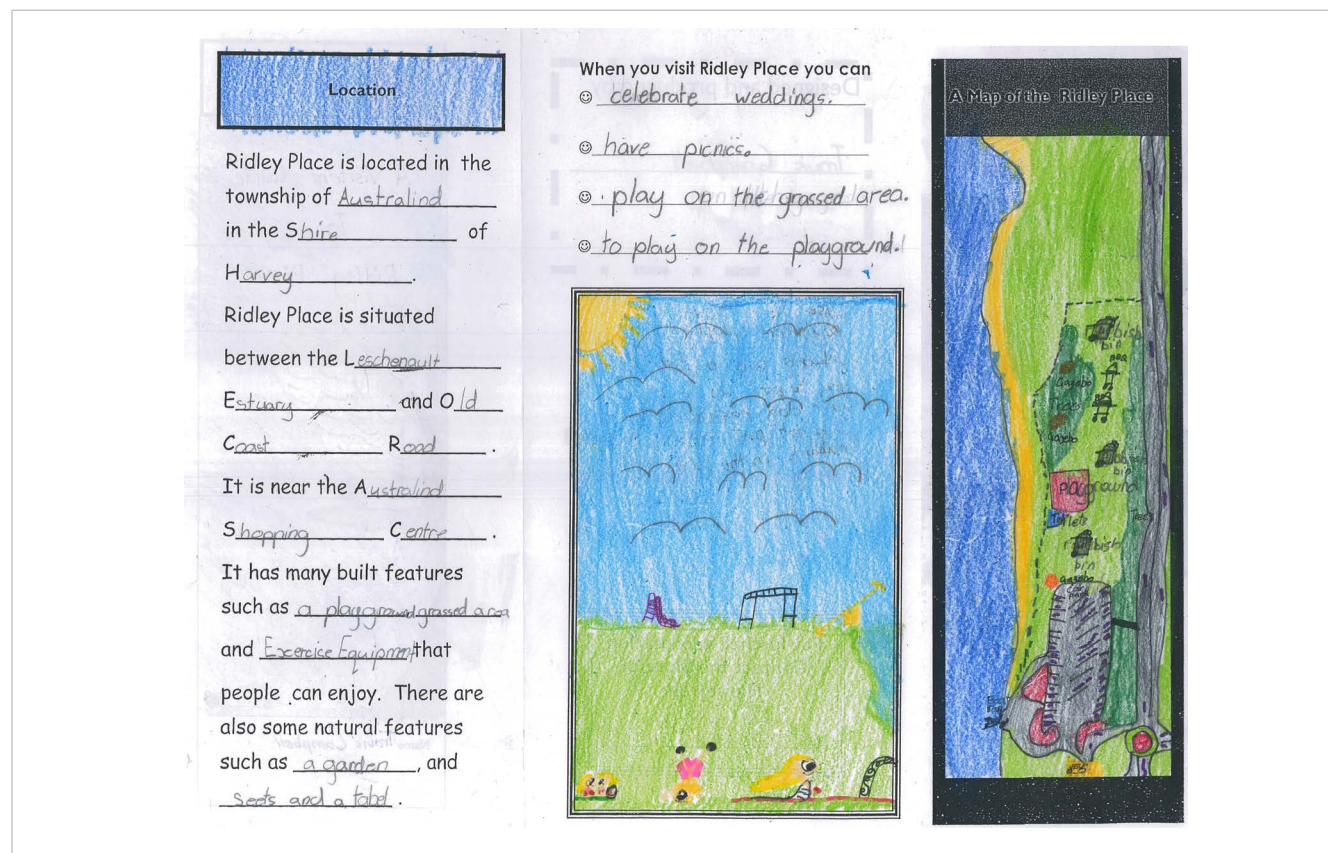 Location
Ridley Place is located in the
township of Australind
in the Shire of
Harvey.
Ridley Place is situated
between the Leschenault
Estuary and Old
Coast Road.
It is near the Australind
Shopping Centre.
It has many built features
such as a playground, grassed area
and Excercise Equipmnt that
people can enjoy. There are
also some natural features
such as a garden, and
Seets and a tabel.
When you visit Ridley Place you can
☺ celebrate weddings.
☺ have picnics.
☺ play on the grassed area.
☺ to play on the playground.
A Map of the Ridley Place
bin
Gazabo
Gazabo
bin
Playground
Toilets
Trees
bin
Gazabo